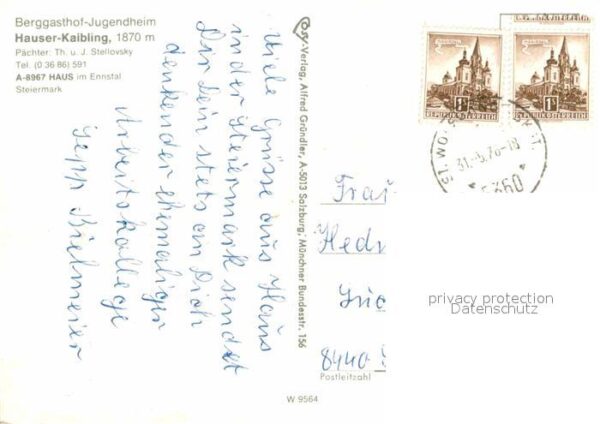 Berggasthof-Jugendheim
Hauser-Kaibling, 1870 m
Pächter: Th. u. J. Stellovsky
Tel. (0 36 86) 591
A-8967 HAUS im Ennstal
Steiermark
Viele Grüsse aus Haus
in der Steiermark sendet
Dir Dein stets an Dich
denkender ehemaliger
Arbeitskollege
Sepp Kielmeier
Cosy-Verlag, Alfred Gründler, A-5013 Salzburg, Münchner Bundesstr. 156
1 S
REPUBLIK ÖSTERREICH
1 S
REPUBLIK ÖSTERREICH
ST. WO
31.-5.76-18
5360
Frau
Hedw
8440
Postleitzahl
W 9564
privacy protection
Datenschutz